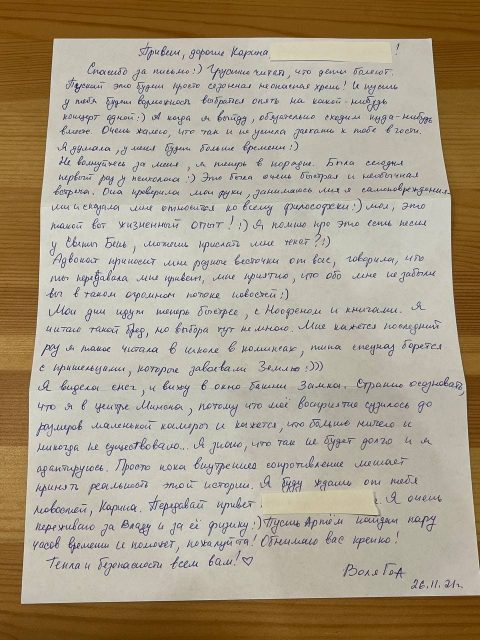 Привет, дорогие Карина !
Спасибо за письмо :) Грустно читать, что дети болеют.
Пускай это будет просто сезонная неопасная хрень! И пусть
у тебя будет возможность выбраться опять на какой-нибудь
концерт одной :) А когда я выйду, обязательно сходим куда-нибудь
вместе. Очень жалею, что так и не успела заехать к тебе в гости.
Я думала, у меня будет больше времени :)
Не волнуйтесь за меня, я теперь в порядке. Была сегодня
первый раз у психолога :) Это была очень быстрая и необычная
встреча. Она проверила мои руки, занималась ли я самоповреждения-
ми и сказала мне относится ко всему философски :) мол, это
такой вот жизненный опыт! :) Я помню про это есть песня
у Евгыты Бень, можешь прислать мне текст? :)
Адвокат приносит мне радные весточки от вас, говорила, что
ты передавала мне приветы, мне приятно, что обо мне не забыли
вы в таком огромном потоке новостей :)
Мои дни идут теперь быстрее, с Ноофеном и книгами. Я
читаю такой бред, но выбора тут не много. Мне кажется последний
раз я такое читала в школе в комиксах, типа спецназ борется
с пришельцами, которые завоевали Землю :)))
Я видела снег, и вижу в окно башни Замка. Странно осознавать,
что я в центре Минска, потому что моё восприятие сузилось до
размеров маленькой камеры и кажется, что больше ничего и
никогда не существовало... Я знаю, что так не будет долго и я
адаптируюсь. Просто пока внутреннее сопротивление мешает
принять реальность этой истории. Я буду ждать от тебя
новостей, Карина. Передавай привет . Я очень
переживаю за Владу и за её физику :) Пусть Артём найдёт пару
часов времени и поможет, пожалуйста! Обнимаю вас крепко!
Тепла и безопасности всем вам! ♡
26.11.21г.